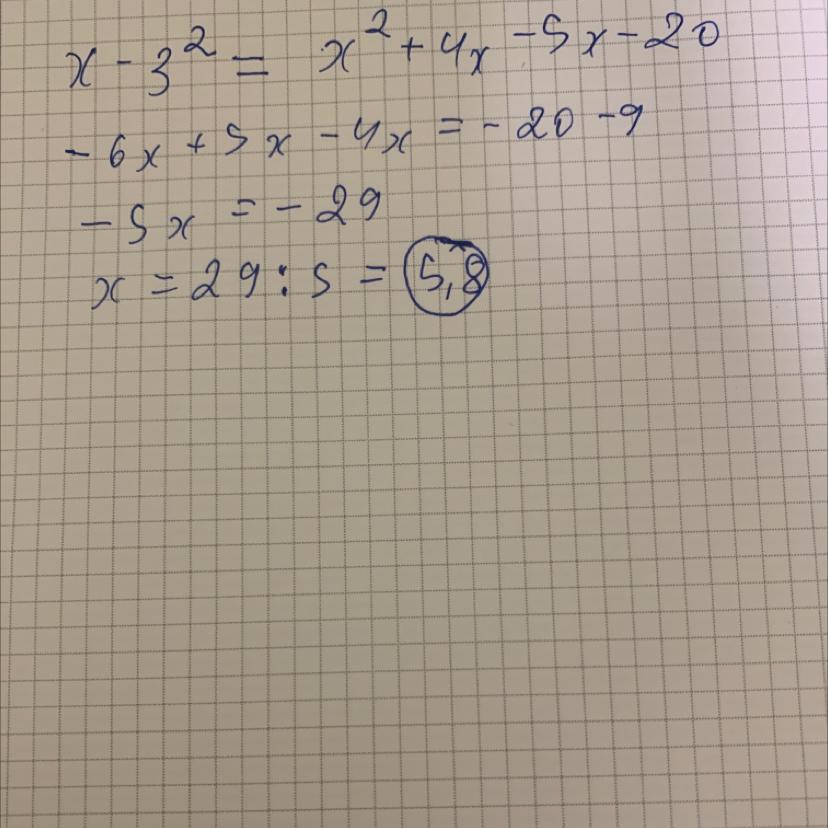 x - 3² = x² + 4x - 5x - 20
- 6x + 5x - 4x = - 20 - 9
- 5x = - 29
x = 29 : 5 = 5,8